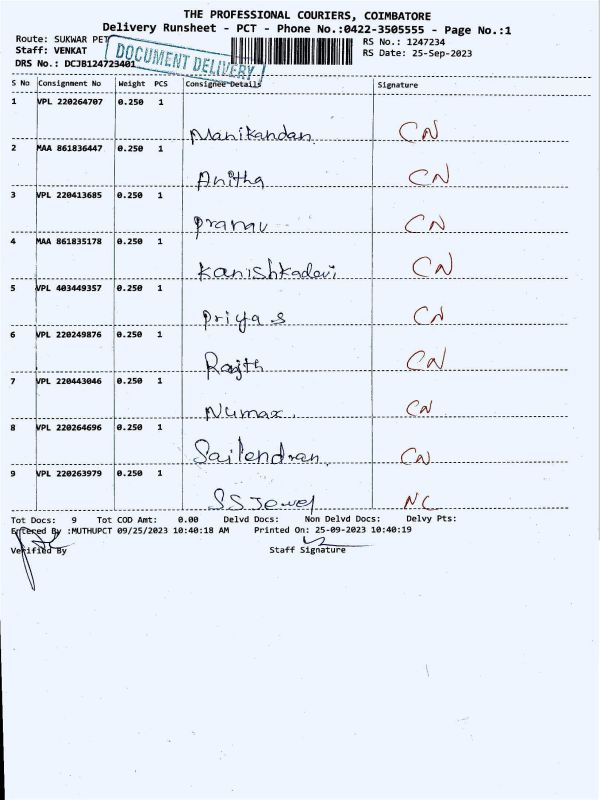 THE PROFESSIONAL COURIERS, COIMBATORE
Delivery Runsheet - PCT - Phone No.:0422-3505555 - Page No.:1
Route: SUKWAR PET
RS No.: 1247234
Staff: VENKAT
RS Date: 25-Sep-2023
DRS No.: DCJB124723401
DOCUMENT DELIVERY
S No Consignment No Weight PCS Consignee Details Signature
1 VPL 220264707 0.250 1
Manikandan CN
2 MAA 861836447 0.250 1
Anitha CN
3 VPL 220413685 0.250 1
Pranav CN
4 MAA 861835178 0.250 1
Kanishkadevi CN
5 VPL 403449357 0.250 1
Priya S CN
6 VPL 220249876 0.250 1
CN
7 VPL 220443046 0.250 1
Numax. CN
8 VPL 220264696 0.250 1
Sailendran CN
9 VPL 220263979 0.250 1
SS Jewel NC
Tot Docs: 9 Tot COD Amt: 0.00 Delvd Docs: Non Delvd Docs: Delvy Pts:
Entered By :MUTHUPCT 09/25/2023 10:40:18 AM Printed On: 25-09-2023 10:40:19
Verified By Staff Signature